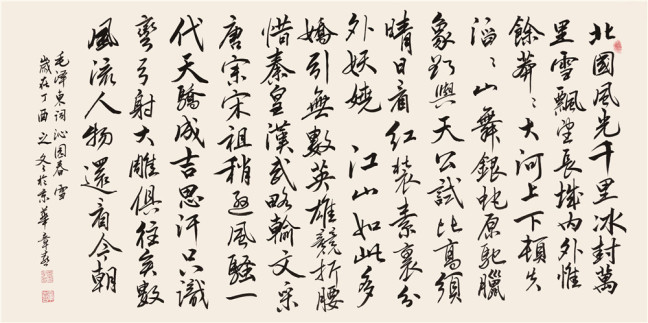 北國風光千里冰封萬
里雪飄望長城内外惟
餘莽〻大河上下頓失
滔〻山舞銀蛇原馳臘
象欲與天公試比高須
晴日看红裝素裹分
外妖嬈 江山如此多
嬌引無數英雄競折腰
惜秦皇漢武略輸文采
唐宗宋祖稍遜風騷一
代天驕成吉思汗只識
彎弓射大雕俱往矣數
風流人物還看今朝
毛澤東詞沁園春 雪
歲在丁酉之冬於京華